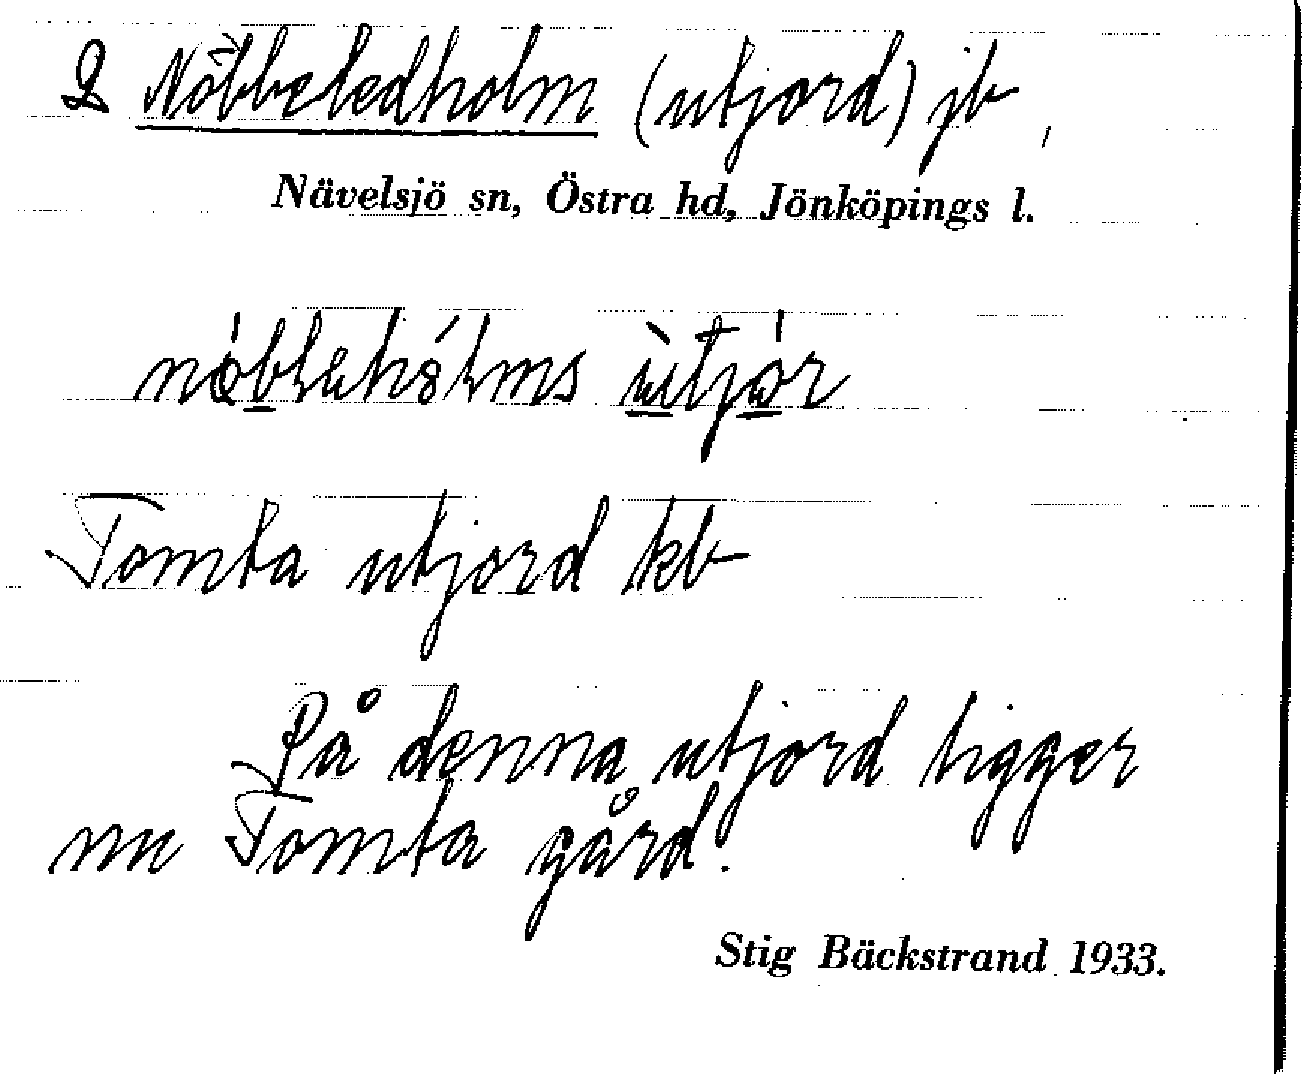 2 Nöbbeledholm (utjord) jb
Nävelsjö sn, Östra hd, Jönköpings l.
utjor
Tomta utjord kb
På denna utjord ligger
nu Tomta gård.
Stig Bäckstrand 1933.